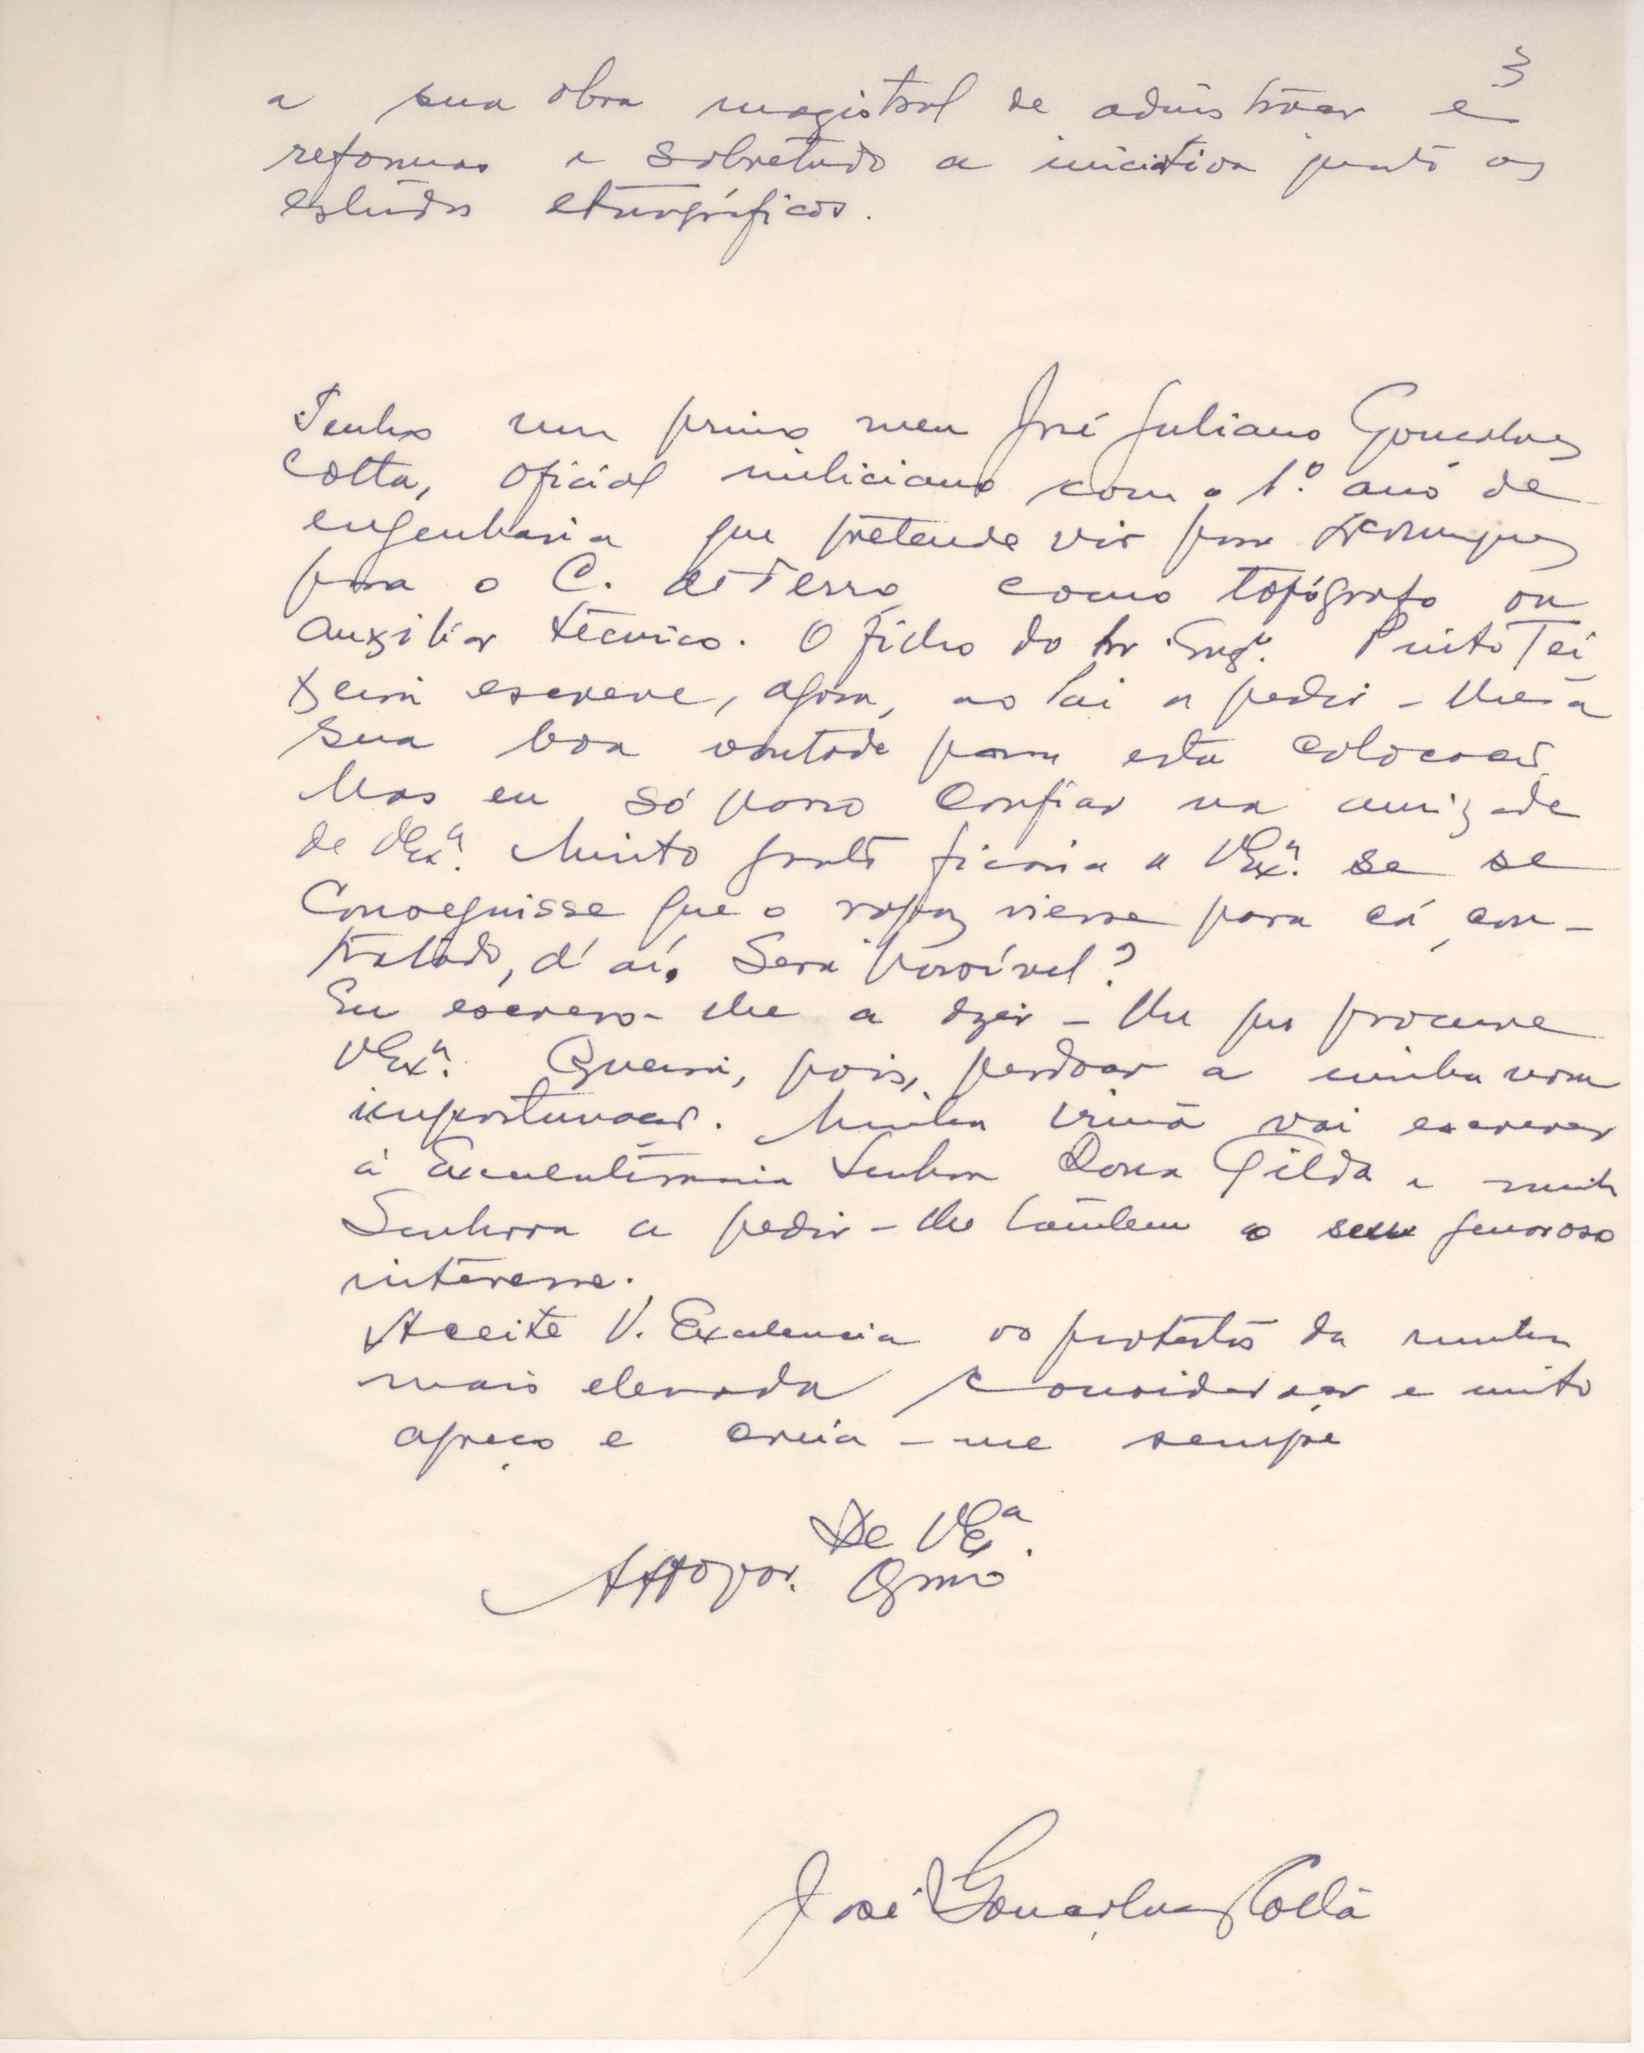 3
a sua obra magistral de adminstrar e
reformas e sobretudo a iniciativa quanto aos
estudos etnográficos.
Tenho um primo meu José Juliano Goncalves
Cotta, oficial miliciano com o 1.º ano de
engenharia que pretende vir para L. Marques
para o C. de Ferro como topógrafo ou
auxiliar técnico. O filho do Sr. Engº. Pinto Tei
xeira escreve, agora, ao Pai a pedir-lhe a
sua boa vontade para esta colocacão
Mas eu só posso confiar na amizade
de VExª. Muito grato ficaria a VExª. se se
conseguisse que o rapaz viesse para cá, con-
tratado, d'aí. Será possível?
Eu escrevo-lhe a dizer-lhe que procure
VExª. Queira, pois, perdoar a minha nova
importunacão. Minha irmã vai escrever
á Excelentíssima Senhora Dona Gilda e minha
Senhora a pedir-lhe também o seu generoso
interesse.
Aceite V. Excelencia os protestos da minha
mais elevada consideracão e muito
apreço e creia-me sempre
De VExª.
Atto Vor. Obgmo
José Gonçalves Cotta